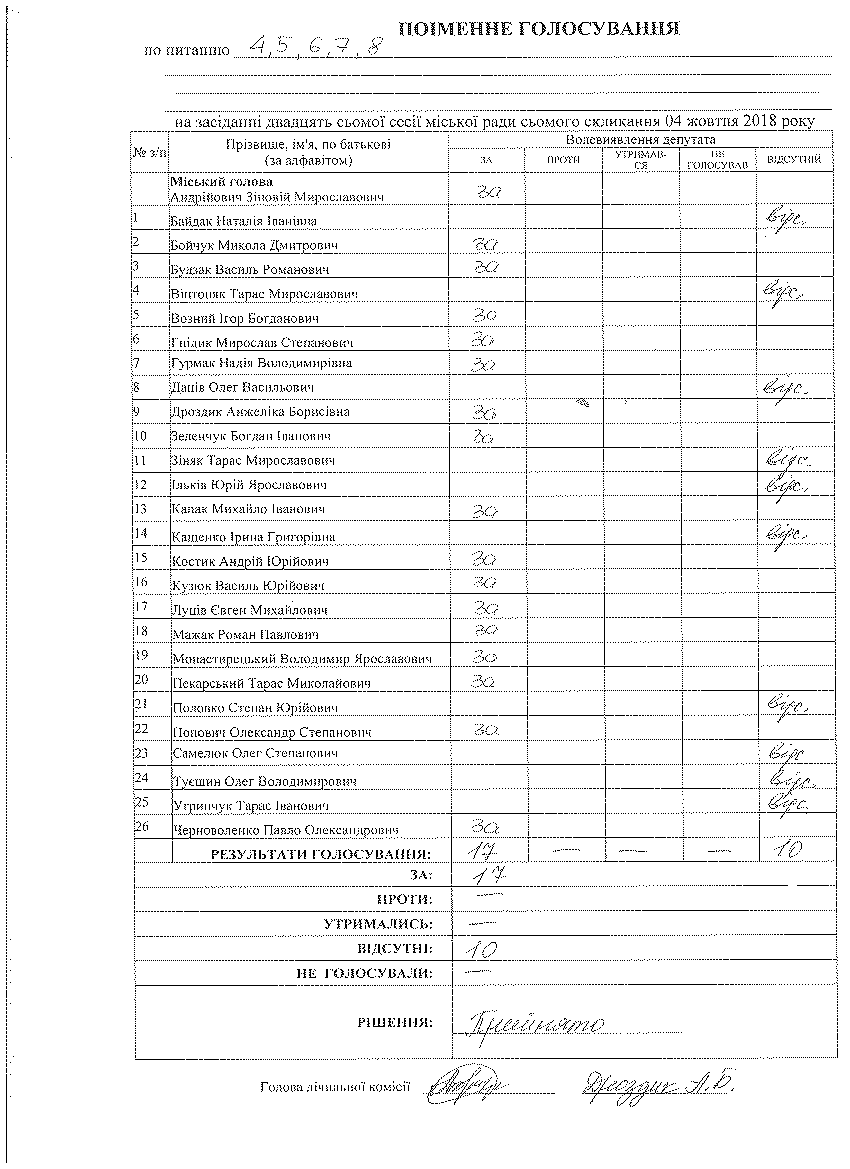 ПОІМЕННЕ ГОЛОСУВАННЯ
по питанню 4, 5, 6, 7, 8
на засіданні двадцять сьомої сесії міської ради сьомого скликання 04 жовтня 2018 року
№ з/п Прізвище, ім'я, по батькові (за алфавітом) Волевиявлення депутата
ЗА ПРОТИ УТРИМАВ-СЯ НЕ ГОЛОСУВАВ ВІДСУТНІЙ
Міський голова
Андрійович Зіновій Мирославович за
1 Байдак Наталія Іванівна відс.
2 Бойчук Микола Дмитрович за
3 Будзак Василь Романович за
4 Вінтоняк Тарас Мирославович відс.
5 Возний Ігор Богданович за
6 Гнідик Мирослав Степанович за
7 Гурмак Надія Володимирівна за
8 Даців Олег Васильович відс.
9 Дроздик Анжеліка Борисівна за
10 Зеленчук Богдан Іванович за
11 Зіняк Тарас Мирославович відс.
12 Ільків Юрій Ярославович відс.
13 Капак Михайло Іванович за
14 Кащенко Ірина Григорівна відс.
15 Костик Андрій Юрійович за
16 Кузюк Василь Юрійович за
17 Луців Євген Михайлович за
18 Мажак Роман Павлович за
19 Монастирецький Володимир Ярославович за
20 Пекарський Тарас Миколайович за
21 Половко Степан Юрійович відс.
22 Попович Олександр Степанович за
23 Самелюк Олег Степанович відс
24 Туєшин Олег Володимирович відс.
25 Угринчук Тарас Іванович відс.
26 Черноволенко Павло Олександрович за
РЕЗУЛЬТАТИ ГОЛОСУВАННЯ: 17 — — — 10
ЗА: 17
ПРОТИ: —
УТРИМАЛИСЬ: —
ВІДСУТНІ: 10
НЕ ГОЛОСУВАЛИ: —
РІШЕННЯ: Прийнято
Голова лічильної комісії Дроздик А.Б.